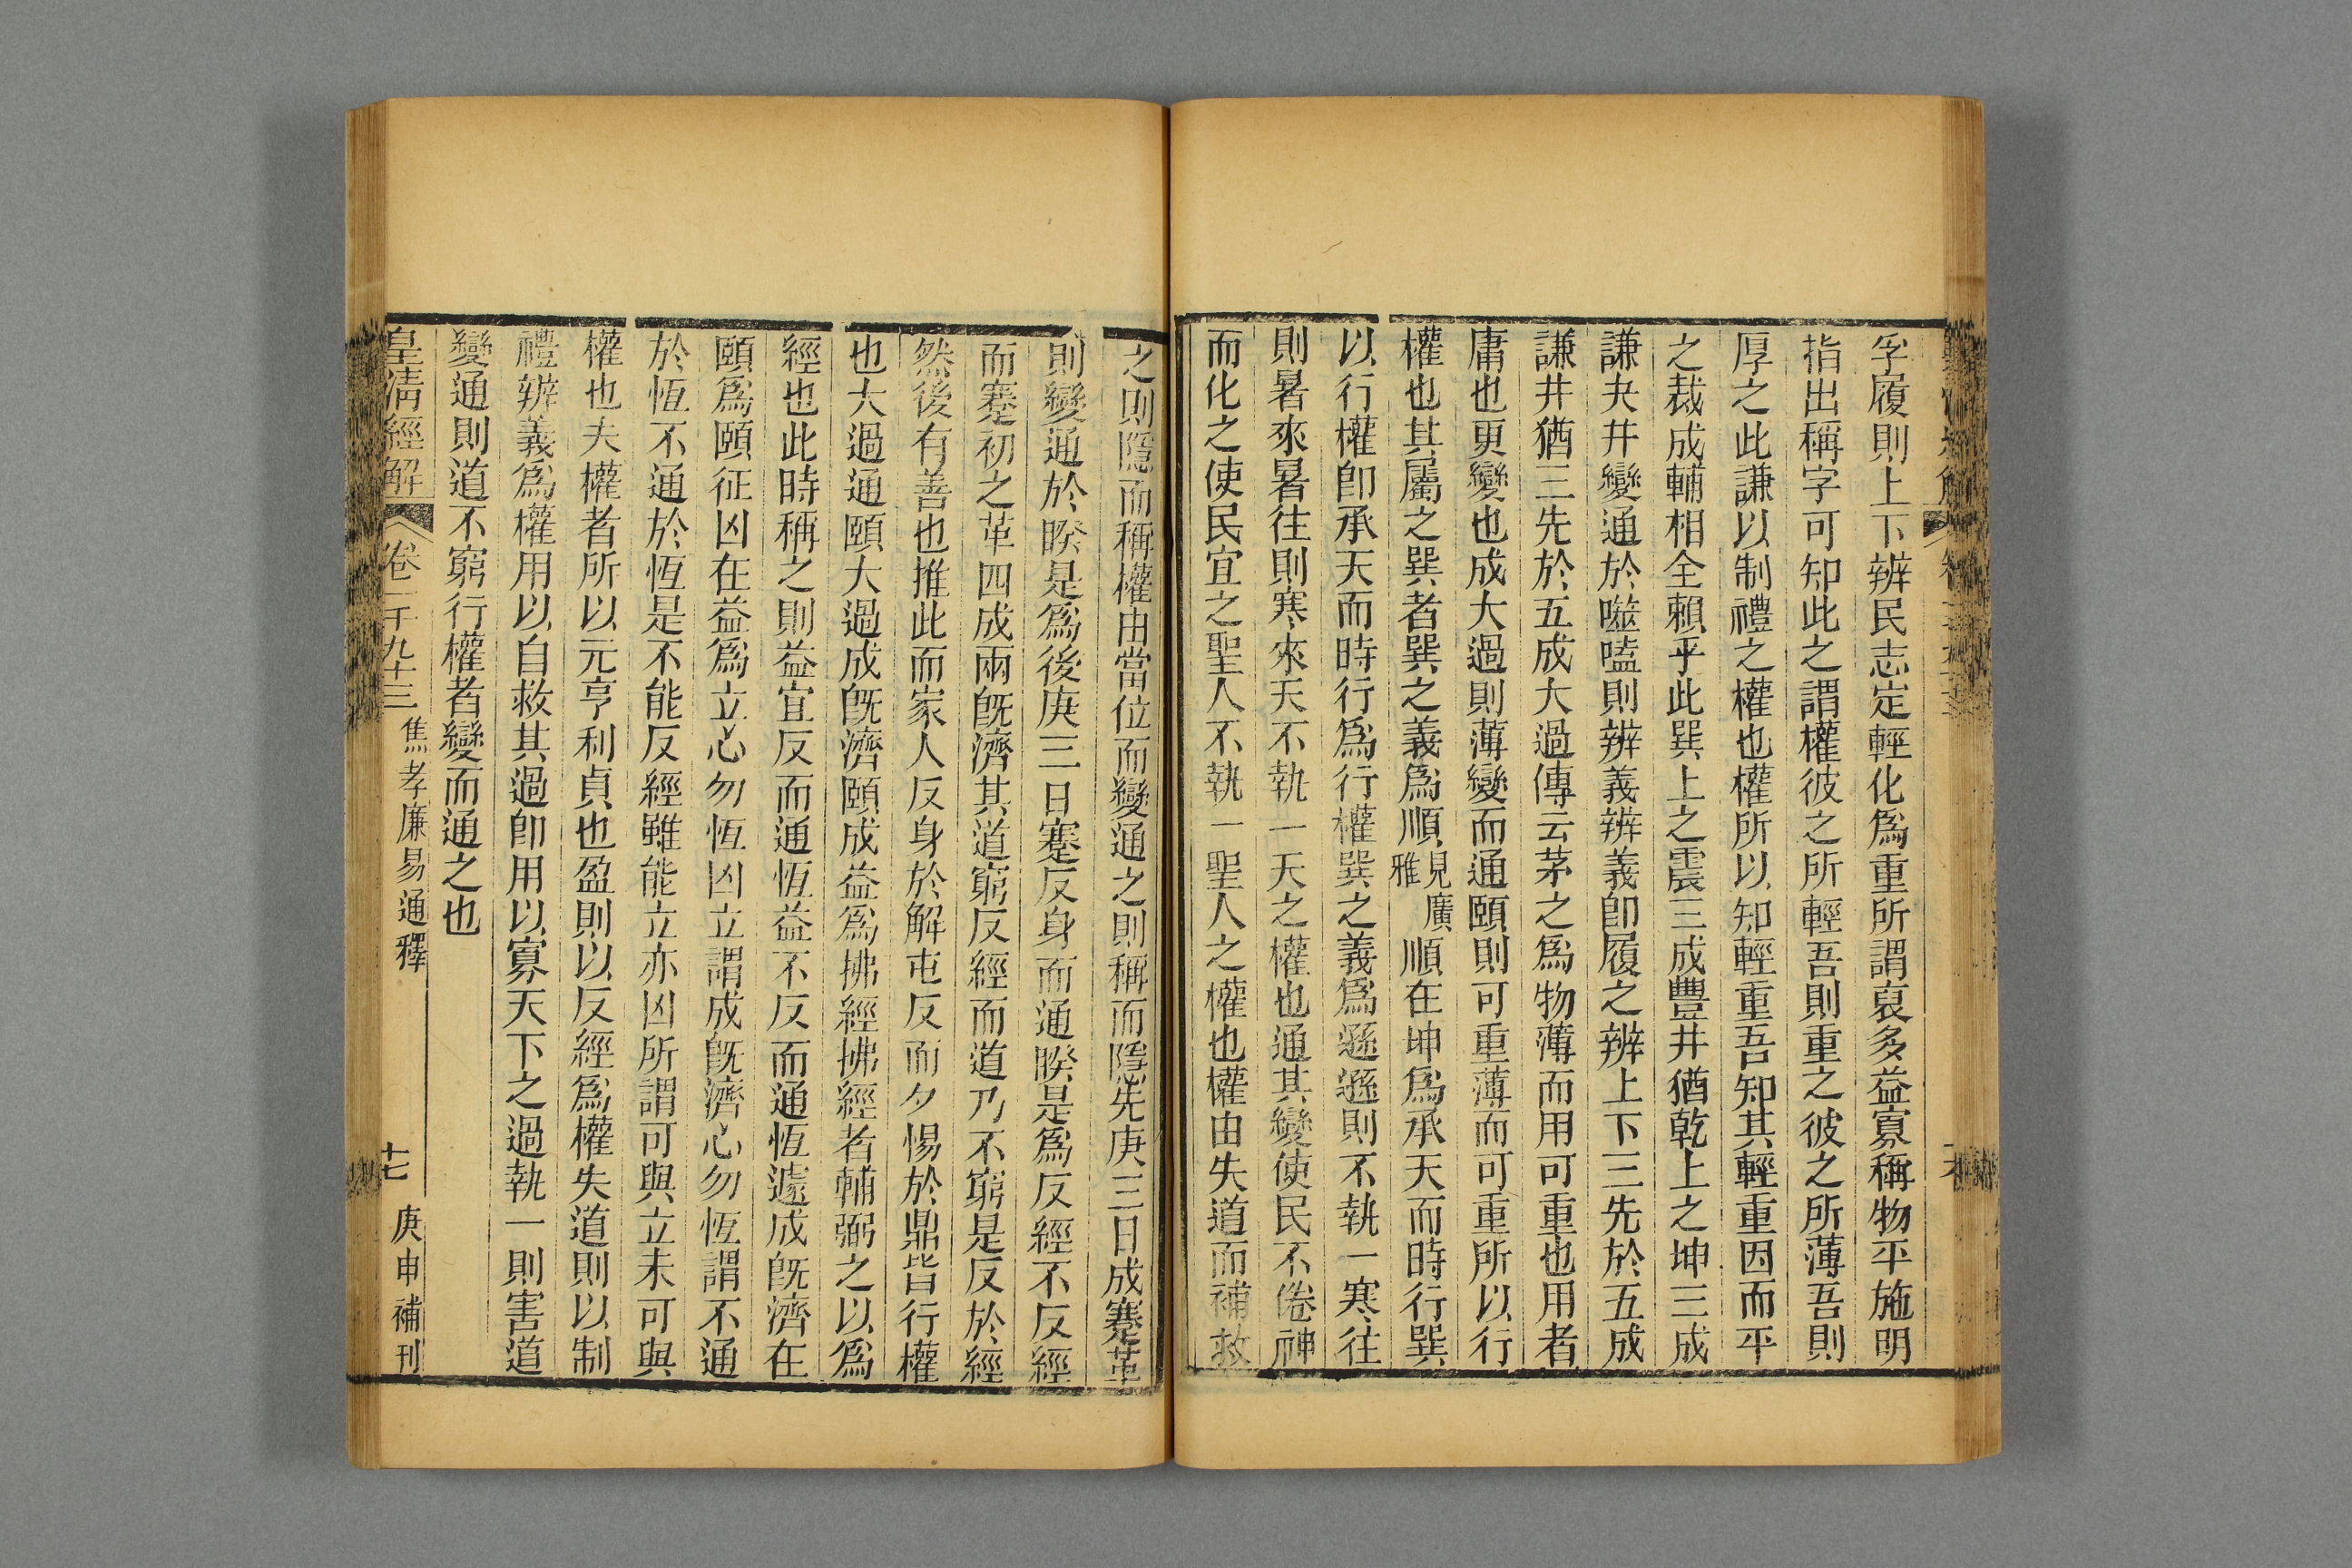 孚履則上下辨民志定輕化爲重所謂裒多益寡稱物平施明
指出稱字可知此之謂權彼之所輕吾則重之彼之所薄吾則
厚之此謙以制禮之權也權所以知輕重吾知其輕重因而平
之裁成輔相全賴乎此巽上之震三成豐井猶乾上之坤三成
謙夬井變通於噬嗑則辨義辨義卽履之辨上下三先於五成
謙井猶三先於五成大過傳云茅之爲物薄而用可重也用者
庸也更變也成大過則薄變而通頤則可重薄而可重所以行
權也其屬之巽者巽之義爲順見廣雅順在坤爲承天而時行巽
以行權卽承天而時行爲行權巽之義爲遜遜則不執一寒往
則暑來暑往則寒來天不執一天之權也通其變使民不倦神
而化之使民宜之聖人不執一聖人之權也權由失道而補救
之則隱而稱權由當位而變通之則稱而隱先庚三日成蹇革
則變通於睽是爲後庚三日蹇反身而通睽是爲反經不反經
而蹇初之革四成兩旣濟其道窮反經而道乃不窮是反於經
然後有善也推此而家人反身於解屯反而夕惕於鼎皆行權
也大過通頤大過成旣濟頤成益爲拂經拂經者輔弼之以爲
經也此時稱之則益宜反而通恆益不反而通恆遽成旣濟在
頤爲頤征凶在益爲立心勿恆凶立謂成旣濟心勿恆謂不通
於恆不通於恆是不能反經雖能立亦凶所謂可與立未可與
權也夫權者所以元亨利貞也盈則以反經爲權失道則以制
禮辨義爲權用以自救其過卽用以寡天下之過執一則害道
變通則道不窮行權者變而通之也
皇淸經解 卷一千九十三 焦孝廉易通釋 十七 庚申補刊